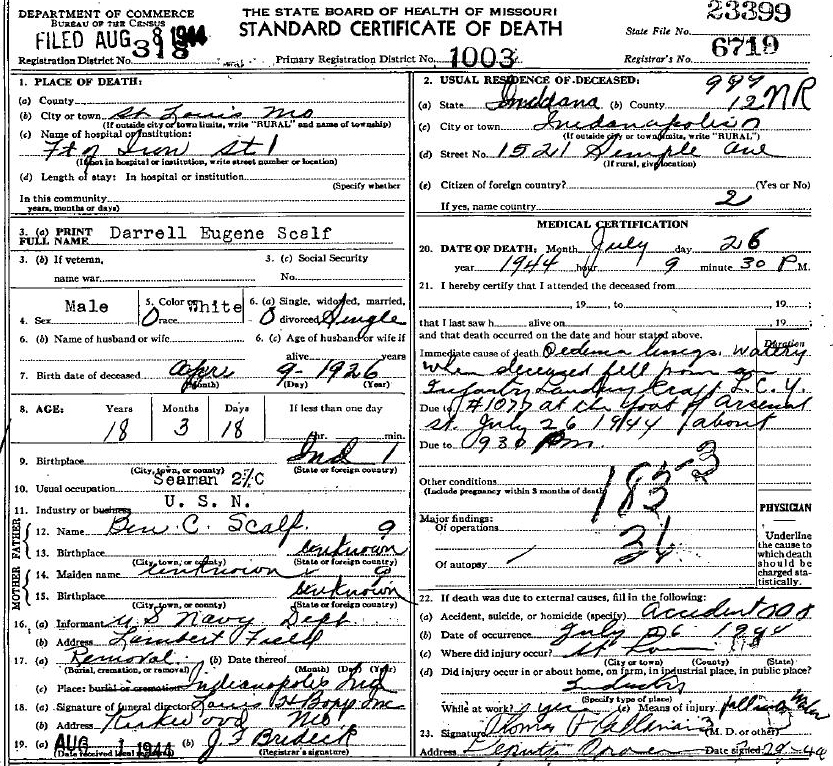 DEPARTMENT OF COMMERCE
BUREAU OF THE CENSUS
FILED AUG 8 1944
318
Registration District No.
THE STATE BOARD OF HEALTH OF MISSOURI
STANDARD CERTIFICATE OF DEATH
Primary Registration District No. 1003
23399
State File No.
6719
Registrar's No.
1. PLACE OF DEATH:
(a) County
(b) City or town St Louis Mo
(If outside city or town limits, write "RURAL" and name of township)
(c) Name of hospital or institution:
Ft of Iron St 1
(If not in hospital or institution, write street number or location)
(d) Length of stay: In hospital or institution
(Specify whether
In this community
years, months or days)
3. (a) PRINT FULL NAME Darrell Eugene Scalf
3. (b) If veteran, name war
3. (c) Social Security No.
4. Sex Male
5. Color or race White
6. (a) Single, widowed, married, divorced Single
6. (b) Name of husband or wife
6. (c) Age of husband or wife if alive years
7. Birth date of deceased Apri 9 - 1926
(Month) (Day) (Year)
8. AGE: Years Months Days If less than one day
18 3 18 hr. min.
9. Birthplace Ind 1
(City, town, or county) (State or foreign country)
10. Usual occupation Seaman 2/C
11. Industry or business U. S. N.
FATHER
12. Name Ben. C. Scalf 9
13. Birthplace unknown
(City, town, or county) (State or foreign country)
MOTHER
14. Maiden name unknown 9
15. Birthplace unknown
(City, town, or county) (State or foreign country)
16. (a) Informant U S Navy Dept
(b) Address Lambert Field
17. (a) Removal (b) Date thereof
(Burial, cremation, or removal) (Month) (Day) (Year)
(c) Place: burial or cremation Indianapolis Ind
18. (a) Signature of funeral director Louis H Bopp Inc
(b) Address Kirkwood Mo
19. (a) AUG 1 1944 (b) J F Bredeck
(Date received local registrar) (Registrar's signature)
2. USUAL RESIDENCE OF DECEASED: 999
(a) State Indiana (b) County 12 NR
(c) City or town Indianapolis
(If outside city or town limits, write "RURAL")
(d) Street No. 1521 Semple Ave
(If rural, give location)
(e) Citizen of foreign country? (Yes or No)
If yes, name country 2
MEDICAL CERTIFICATION
20. DATE OF DEATH: Month July day 26
year 1944 hour 9 minute 30 P M.
21. I hereby certify that I attended the deceased from
, 19 , to , 19 ;
that I last saw h alive on , 19 ;
and that death occurred on the date and hour stated above.
Duration
Immediate cause of death Oedema lungs. watery
when deceased fell from an
Infantry Landing Craft L.C.Y.
Due to #1077 at the foot of Arsenal
st. July 26 1944 about
Due to 930 Pm.
183-3
Other conditions 183
(Include pregnancy within 3 months of death)
PHYSICIAN
Major findings:
Of operations 21
Of autopsy 24
Underline
the cause to
which death
should be
charged sta-
tistically.
22. If death was due to external causes, fill in the following:
(a) Accident, suicide, or homicide (specify) Accident
(b) Date of occurrence July 26 1944
(c) Where did injury occur? St Louis
(City or town) (County) (State)
(d) Did injury occur in or about home, on farm, in industrial place, in public place?
Industry
(Specify type of place)
While at work? yes (e) Means of injury fall into water
23. Signature Thomas F Callanan (M. D. or other) 3
Address Deputy Coroner Date signed 7/29-44